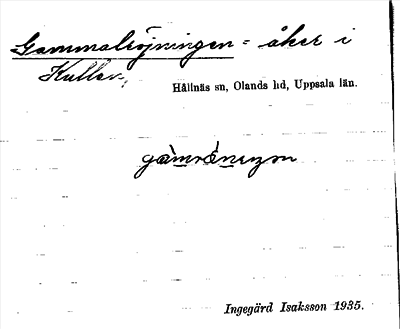 Gammalröjningen = åker i
Kullen,
Hållnäs sn, Olands hd, Uppsala län.
Ingegärd Isaksson 1935.